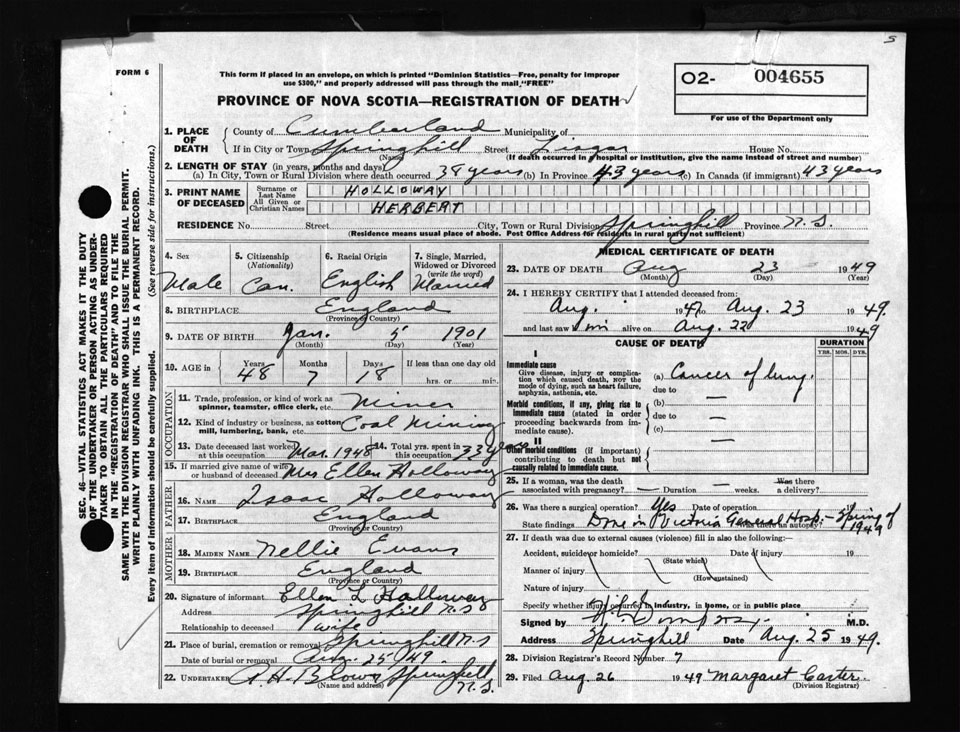 S
FORM 6
This form if placed in an envelope, on which is printed "Dominion Statistics—Free, penalty for improper
use $300," and properly addressed will pass through the mail "FREE"
O2- 004655
For use of the Department only
PROVINCE OF NOVA SCOTIA—REGISTRATION OF DEATH
1. PLACE OF DEATH County of Cumberland Municipality of
If in City or Town Springhill Street Lisgar House No.
(Name) (If death occurred in hospital or institution, give the name instead of street and number)
2. LENGTH OF STAY (in years, months and days)
(a) In City, Town or Rural Division where death occurred 38 years (b) In Province 43 years (c) In Canada (if immigrant) 43 years
3. PRINT NAME OF DECEASED Surname or Last Name HOLLOWAY
All Given or Christian Names HERBERT
RESIDENCE No. Street City, Town or Rural Division Springhill Province N.S.
(Residence means usual place of abode. Post Office Address for residents in rural parts not sufficient)
4. Sex Male
5. Citizenship (Nationality) Can.
6. Racial Origin English
7. Single, Married, Widowed or Divorced (write the word) Married
8. BIRTHPLACE England
(Province or Country)
9. DATE OF BIRTH Jan. 5 1901
(Month) (Day) (Year)
10. AGE in Years 48 Months 7 Days 18 If less than one day old
hrs. or min.
OCCUPATION
11. Trade, profession, or kind of work as spinner, teamster, office clerk, etc. Miner
12. Kind of industry or business, as cotton mill, lumbering, bank, etc. Coal Mining
13. Date deceased last worked at this occupation Mar. 1948 14. Total yrs. spent in this occupation 33 years
15. If married give name of wife or husband of deceased Mrs Ellen Holloway
FATHER
16. NAME Isaac Holloway
17. BIRTHPLACE England
(Province or Country)
MOTHER
18. MAIDEN NAME Nellie Evans
19. BIRTHPLACE England
(Province or Country)
20. Signature of informant Ellen L Holloway
Address Springhill N.S
Relationship to deceased wife
21. Place of burial, cremation or removal Springhill N.S
Date of burial or removal Aug. 25/49.
22. UNDERTAKER A. H. Brown Springhill N.S.
(Name and address)
MEDICAL CERTIFICATE OF DEATH
23. DATE OF DEATH Aug 23 1949
(Month) (Day) (Year)
24. I HEREBY CERTIFY that I attended deceased from:
Aug. 1947 to Aug. 23 1949.
and last saw him alive on Aug. 22 1949
CAUSE OF DEATH DURATION
YRS. MOS. DYS.
I
Immediate cause
Give disease, injury or complication which caused death, not the mode of dying, such as heart failure, asphyxia, asthenia, etc.
(a) Cancer of lung.
due to
Morbid conditions, if any, giving rise to immediate cause (stated in order proceeding backwards from immediate cause).
(b) —
due to —
(c)
II
Other morbid conditions (if important) contributing to death but not causally related to immediate cause.
—
25. If a woman, was the death associated with pregnancy? — Duration — weeks. Was there a delivery?
26. Was there a surgical operation? Yes Date of operation
State findings Done in Victoria General Hosp. - Spring of 1949
Was there an autopsy?
27. If death was due to external causes (violence) fill in also the following:—
Accident, suicide or homicide? Date of injury 19
(State which)
Manner of injury
(How sustained)
Nature of injury
Specify whether injury occurred in industry, in home, or in public place
Signed by M.D.
Address Springhill Date Aug. 25 1949.
28. Division Registrar's Record Number 7
29. Filed Aug. 26 1949 Margaret Carter.
(Division Registrar)
SEC. 46—VITAL STATISTICS ACT MAKES IT THE DUTY
OF THE UNDERTAKER OR PERSON ACTING AS UNDER-
TAKER TO OBTAIN ALL THE PARTICULARS REQUIRED
IN THE "REGISTRATION OF DEATH" AND TO FILE THE
SAME WITH THE DIVISION REGISTRAR WHO SHALL ISSUE THE BURIAL PERMIT.
WRITE PLAINLY WITH UNFADING INK. THIS IS A PERMANENT RECORD.
Every item of information should be carefully supplied. (See reverse side for instructions.)